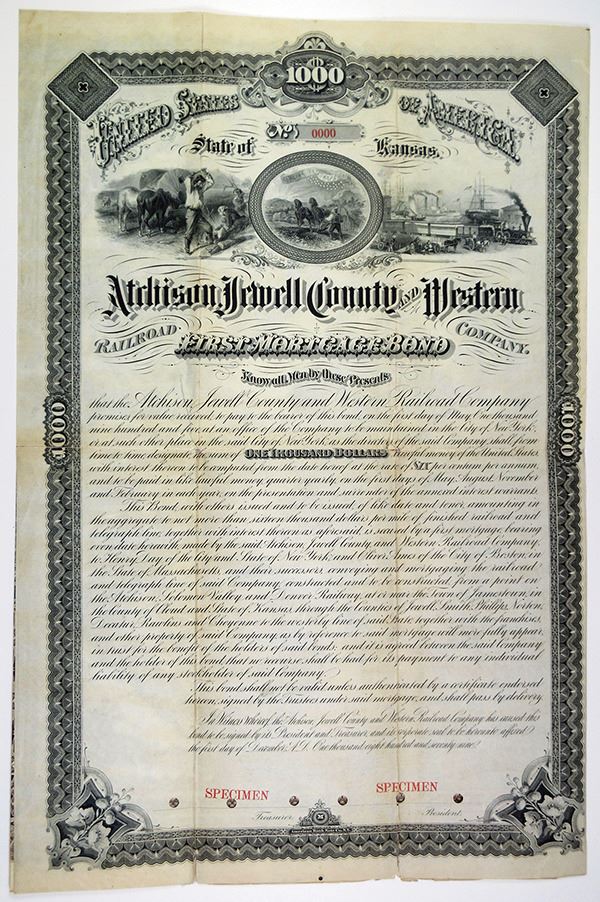 1000
UNITED STATES OF AMERICA.
No 0000
State of Kansas.
Atchison, Jewell County AND Western
RAILROAD COMPANY.
FIRST MORTGAGE BOND
Know all Men by these Presents
that the Atchison, Jewell County and Western Railroad Company
promises, for value received, to pay to the bearer of this bond, on the first day of May, One thousand
nine hundred and five, at an office of the Company to be maintained in the City of New York,
or at such other place in the said City of New York, as the directors of the said Company shall from
time to time designate, the sum of ONE THOUSAND DOLLARS lawful money of the United States,
with interest thereon to be computed from the date hereof at the rate of SIX per centum per annum,
and to be paid in like lawful money quarter yearly on the first days of May, August, November
and February in each year, on the presentation and surrender of the annexed interest warrants.
This Bond, with others issued and to be issued of like date and tenor, amounting in
the aggregate to not more than sixteen thousand dollars per mile of finished railroad and
telegraph line, together with interest thereon as aforesaid, is secured by a first mortgage, bearing
even date herewith, made by the said Atchison, Jewell County and Western Railroad Company,
to Henry Day of the City and State of New York, and Oliver Ames of the City of Boston, in
the State of Massachusetts, and their successors, conveying and mortgaging the railroad
and telegraph line of said Company, constructed and to be constructed from a point on
the Atchison, Solomon Valley and Denver Railway, at or near the town of Jamestown, in
the County of Cloud and State of Kansas, through the Counties of Jewell, Smith, Phillips, Norton,
Decatur, Rawlins and Cheyenne to the westerly line of said State together with the franchises,
and other property of said Company, as by reference to said mortgage will more fully appear,
in trust for the benefit of the holders of said bonds: and it is agreed between the said Company
and the holder of this bond, that no recourse shall be had for its payment to any individual
liability of any stockholder of said Company.
This bond shall not be valid unless authenticated by a certificate endorsed
hereon, signed by the Trustees under said mortgage, and shall pass by delivery.
In Witness Whereof, the Atchison, Jewell County and Western Railroad Company, has caused this
bond to be signed by its President and Treasurer, and its corporate seal to be hereunto affixed
the first day of December, A.D. One thousand eight hundred and seventy nine.
1000
1000
SPECIMEN SPECIMEN
Treasurer. President.
American Bank Note Co. N.Y.